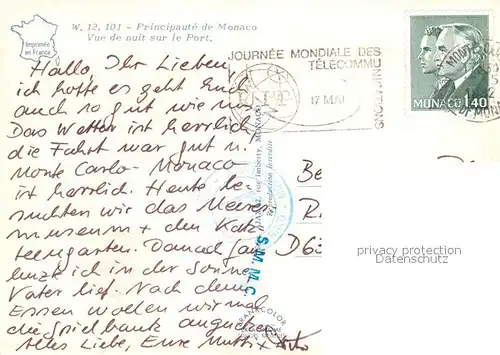 W. 12. 101 - Principauté de Monaco
Vue de nuit sur le Port.
Imprimée
en France
JOURNÉE MONDIALE DES
TÉLECOMMUNICATIONS
17 MAI
MONACO 1,40
MONTE-CARLO
Hallo, Ihr Lieben,
ich hoffe es geht Euch
auch so gut wie uns.
Das Wetter ist herrlich,
die Fahrt war gut u.
Monte Carlo - Monaco
ist herrlich. Heute be-
suchten wir das Meeres-
museum + den Kak-
teengarten. Danach faul-
lenzt ich in der Sonne,
Vater lief. Nach dem
Essen wollen wir mal
die Spielbank angucken.
Alles Liebe, Eure Mutti +
rue Imberty, MONACO
Reproduction interdite
S.M.M.C.
Be
R
D6
privacy protection
Datenschutz